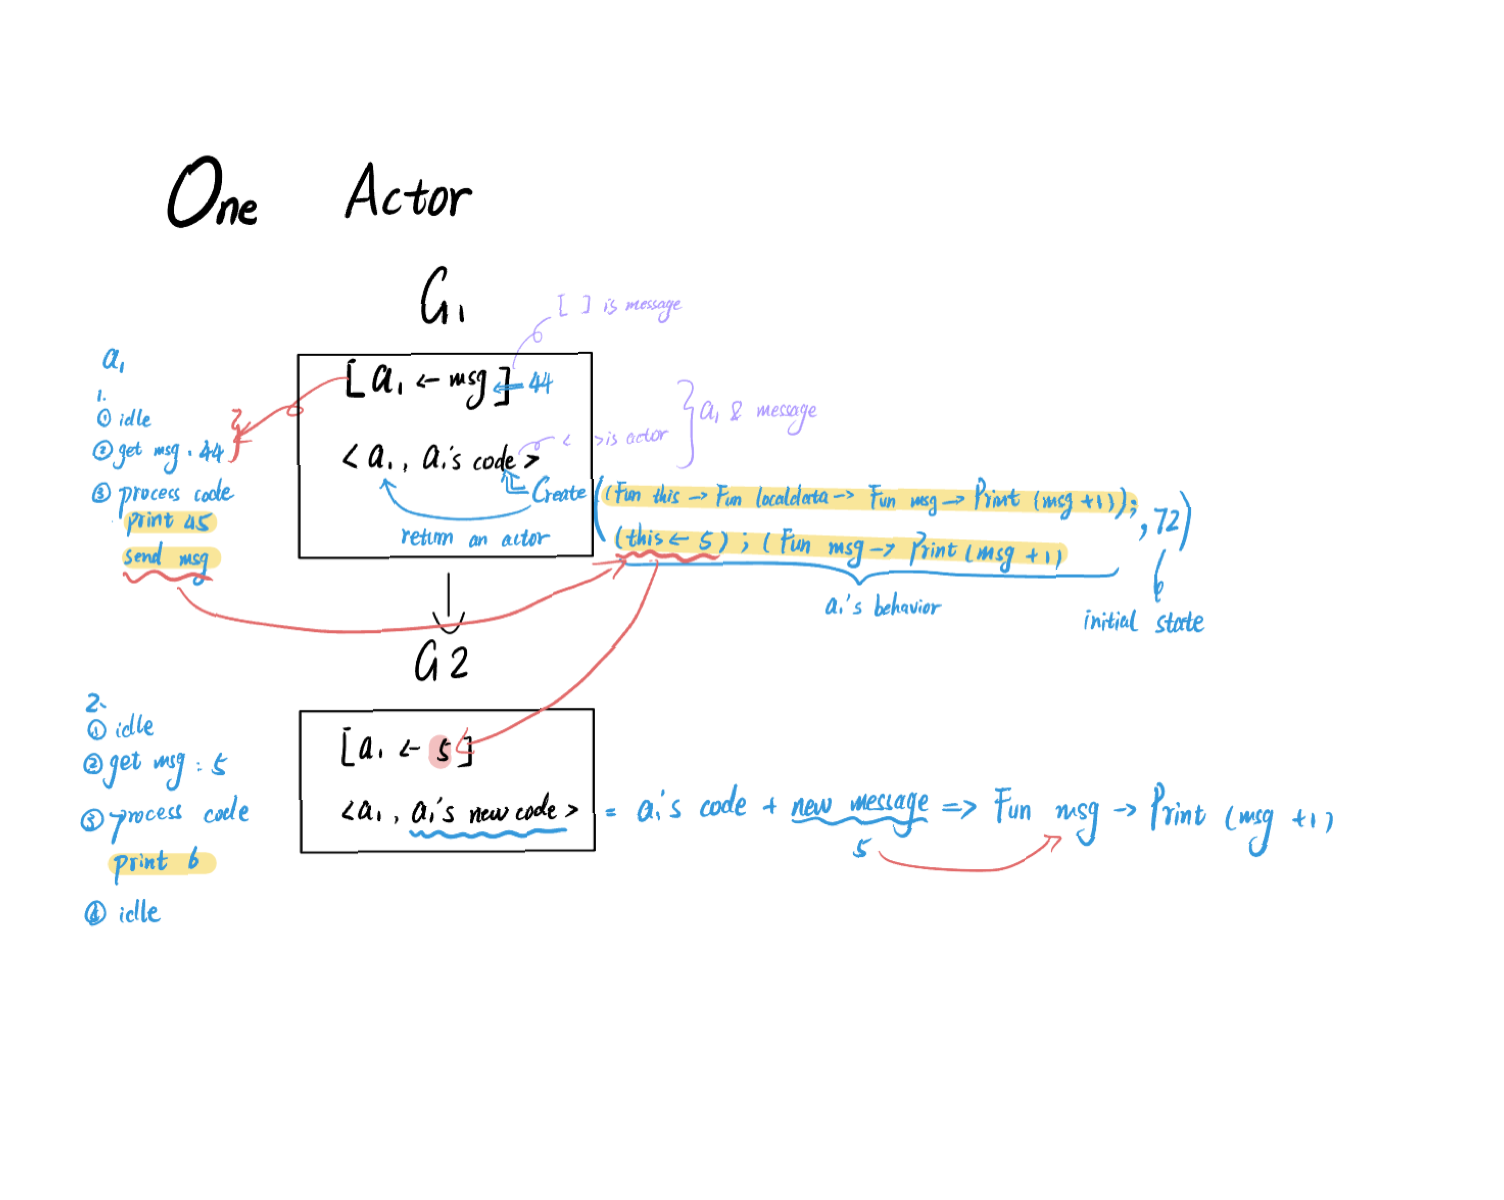 One Actor
G1
[ ] is message
a1
[a1 ← msg] ← 44
1.
① idle
② get msg . 44
③ process code
print 45
send msg
a1 & message
< > is actor
<a1, a1's code>
Create ((Fun this → Fun localdata → Fun msg → Print (msg +1));
(this ← 5) ; (Fun msg → Print (msg +1) , 72)
return an actor
a1's behavior
initial state
G2
2.
① idle
② get msg : 5
③ process code
print 6
④ idle
[a1 ← 5]
<a1, a1's new code> = a1's code + new message => Fun msg → Print (msg +1)
5